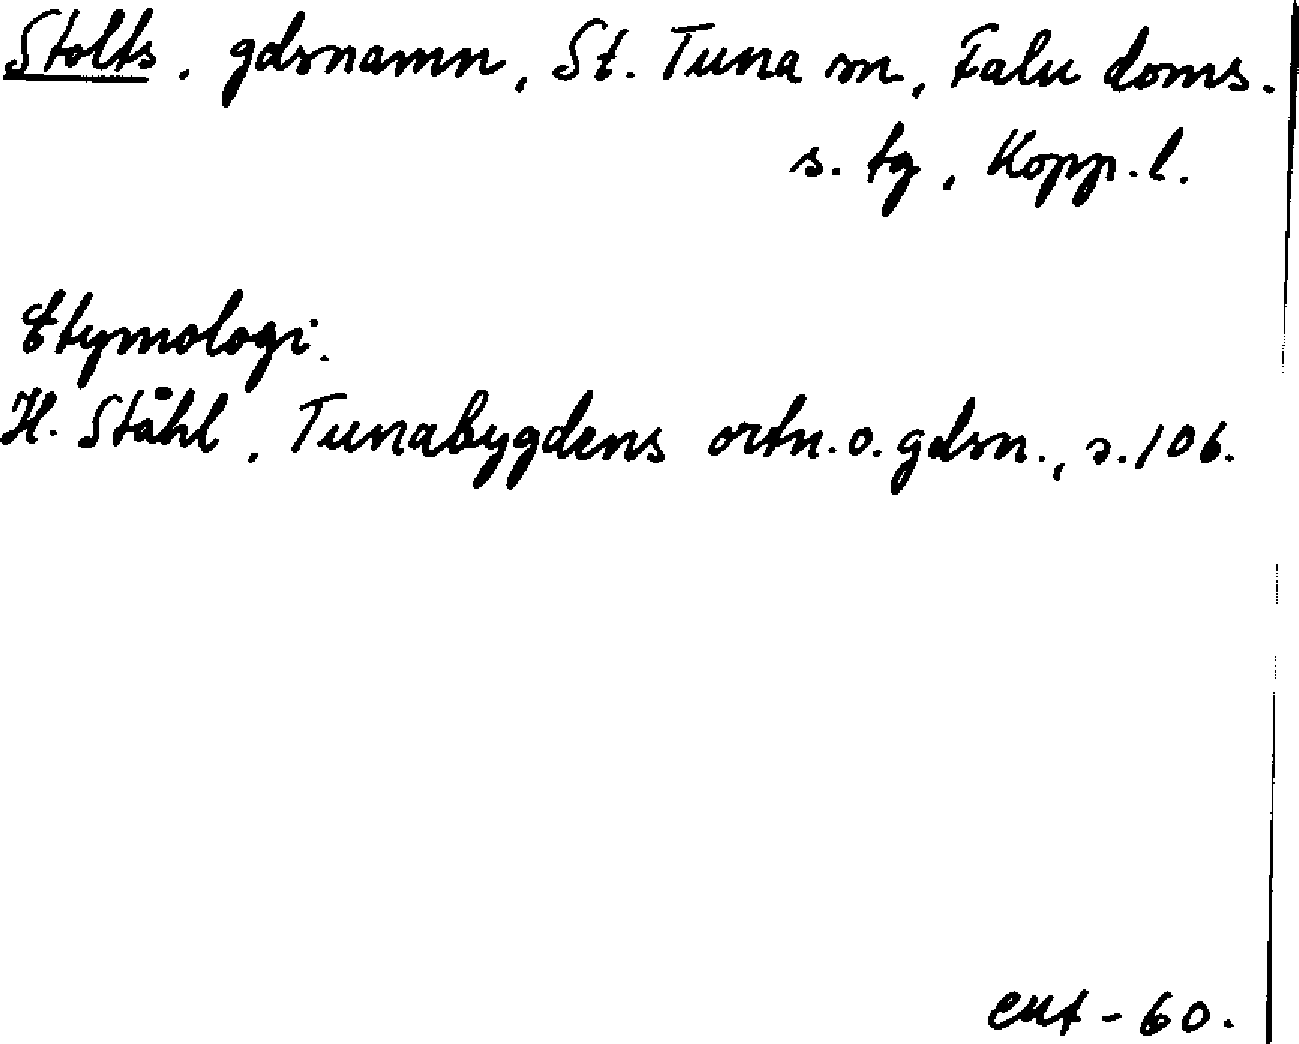 Stolts, gdsnamn, St. Tuna sn, Falu doms.
s. tg, Kopp. l.
Etymologi.
H. Ståhl, Tunabygdens ortn. o. gdsn., s. 106.
-60.